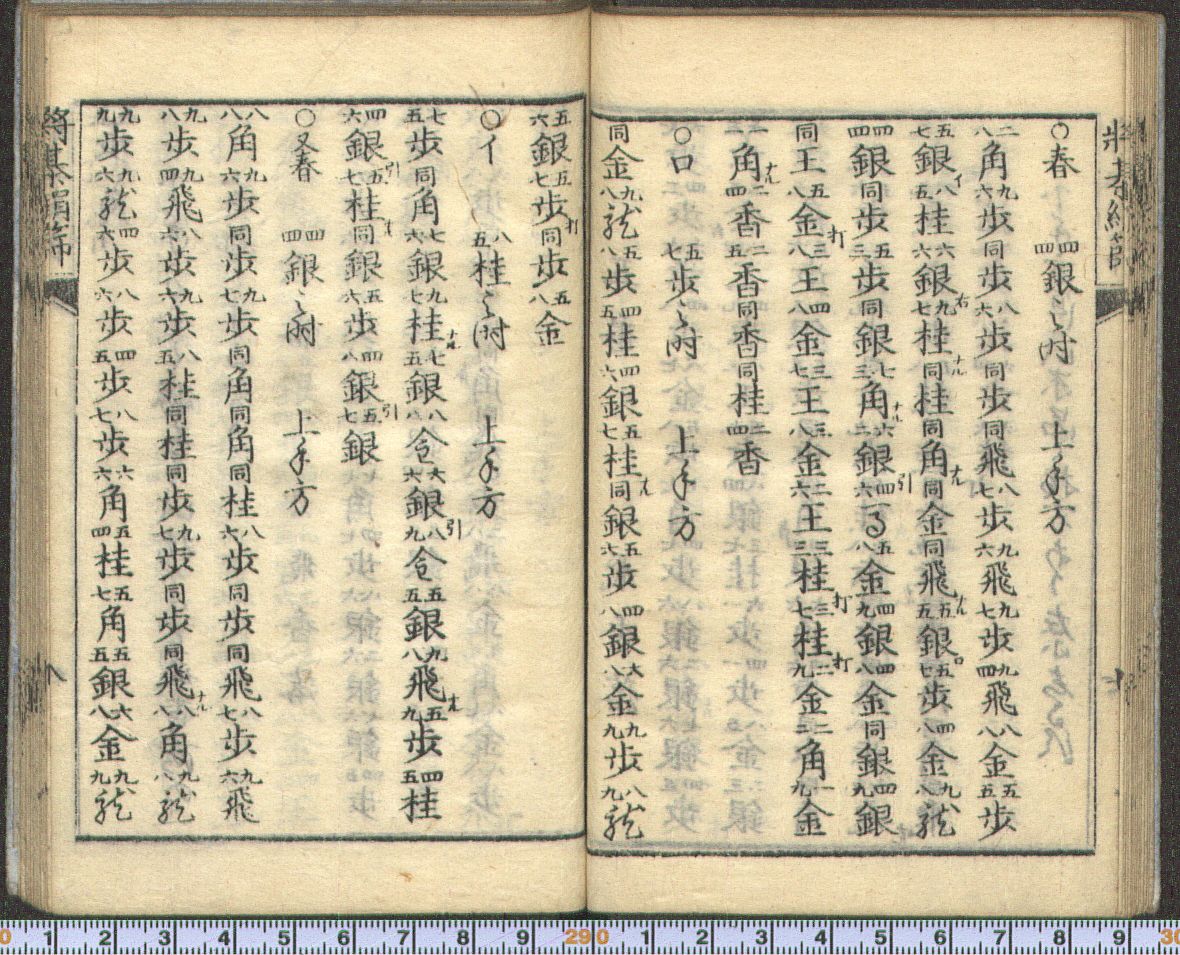 将棊絹篩
○春 四四銀之時 上手方
二八角 九六歩 同歩 八六歩 同歩 同飛 八七歩 九六飛 九七歩 九四飛 八八金 五五歩
五七銀 イ八五桂 六六銀右 九七桂ナル 同桂 同角ナル 同金 同飛ナル 五五銀 ロ五七歩 四八金 九八龍
四四銀 同歩 五三歩 同銀 七三角ナル 六二銀引 四六馬 五八金 四九銀 四八金 同銀 四九銀
同王 五八金打 三八王 四八金 三七王 三八金 二六王 三三桂打 三七桂打 二九金 二二角 一九金
角ナル 二四香 二五香 同香 同桂 二四香
○ロ 五七歩之時 上手方
同金 九八龍 五八歩 四五桂 四六銀 五七桂ナル 同銀 五六歩 四八銀 六八金 九九歩 八九龍
五六銀 五七歩打 同歩 五八金
○イ 八五桂之時 上手方
七五歩 同角 七六銀 九七桂ナル 七五銀 八八金 六六銀引 八九金 五五銀 九八飛ナル 五九歩 四五桂
四六銀引 五七桂ナル 同銀 五六歩 四八銀引 五七銀
○又春 四四銀之時 上手方
八八角 九六歩 同歩 九七歩 同角 同角 同桂 八六歩 同歩 同飛 八七歩 九六飛
九八歩 九四飛 八六歩 九六歩 八五桂 同桂 同歩 九七歩 同歩 同飛ナル 八八角 九八龍
九九歩 九六龍 四六歩 八六歩 四五歩 八七歩 六六角 五四桂 五七角 五五銀 六八金 九九龍
将棊絹篩
八